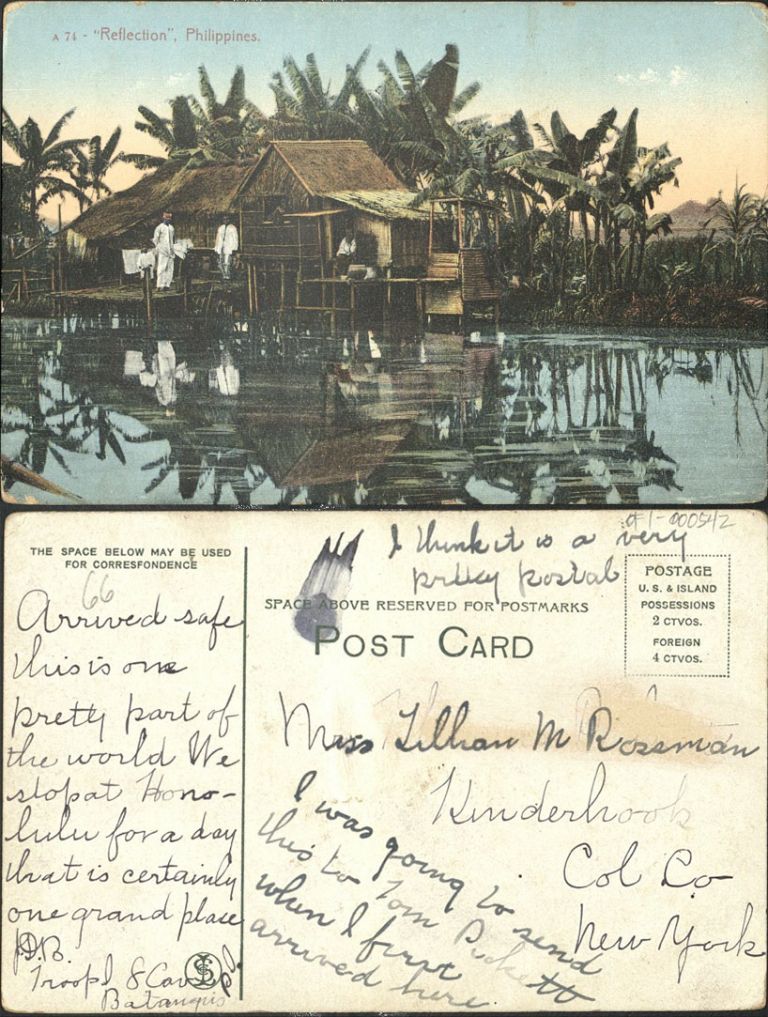 A 74 - "Reflection", Philippines.
of 1-000542
I think it is a very
pretty postal
THE SPACE BELOW MAY BE USED
FOR CORRESPONDENCE
SPACE ABOVE RESERVED FOR POSTMARKS
POST CARD
POSTAGE
U. S. & ISLAND
POSSESSIONS
2 CTVOS.
FOREIGN
4 CTVOS.
66
Arrived safe
this is one
pretty part of
the world We
stop at Hono-
lulu for a day
that is certainly
one grand plase
D.B.
Troop I 8 Cav
Batangus
P.I.
Miss Lillian M Rossman
Kinderhook
Col Co
New York
I was going to send
this to Tom Pickett
when I first
arrived here.